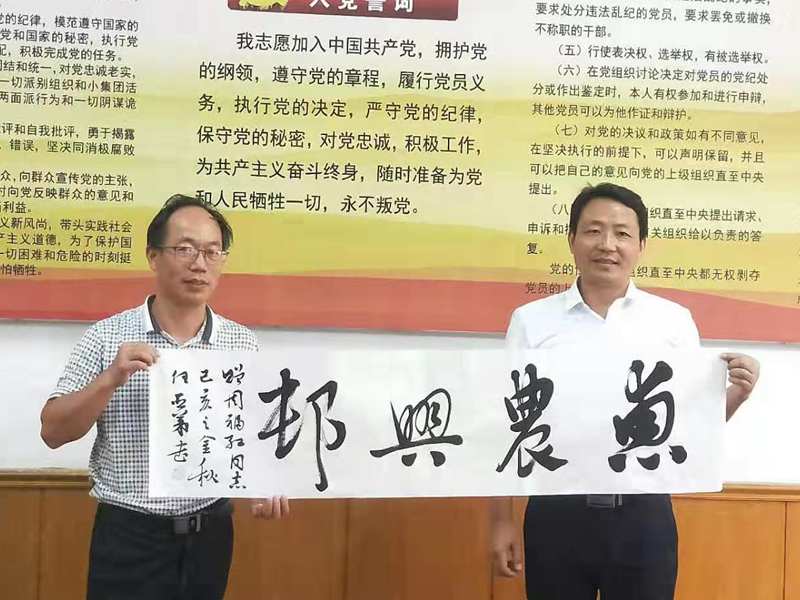 入党誓词
我志愿加入中国共产党，拥护党
的纲领，遵守党的章程，履行党员义
务，执行党的决定，严守党的纪律，
保守党的秘密，对党忠诚，积极工作，
为共产主义奋斗终身，随时准备为党
和人民牺牲一切，永不叛党。
的纪律，模范遵守国家的
党和国家的秘密，执行党
配，积极完成党的任务。
团结和统一，对党忠诚老实，
一切派别组织和小集团活
两面派行为和一切阴谋诡
评和自我批评，勇于揭露
、错误，坚决同消极腐败
众，向群众宣传党的主张，
时向党反映群众的意见和
利益。
义新风尚，带头实践社会
产主义道德，为了保护国
一切困难和危险的时刻挺
怕牺牲。
要求处分违法乱纪的党员，要求罢免或撤换
不称职的干部。
（五）行使表决权、选举权，有被选举权。
（六）在党组织讨论决定对党员的党纪处
分或作出鉴定时，本人有权参加和进行申辩，
其他党员可以为他作证和辩护。
（七）对党的决议和政策如有不同意见，
在坚决执行的前提下，可以声明保留，并且
可以把自己的意见向党的上级组织直至中央
提出。
（八 组织直至中央提出请求、
申诉和 关组织给以负责的答
复。
党的 组织直至中央都无权剥夺
党员的上
農興邨
赠周福红同志
己亥之金秋